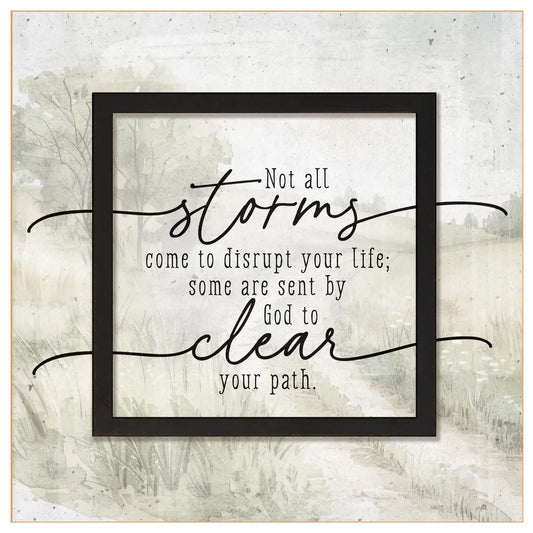 Not all
storms
come to disrupt your life;
some are sent by
God to
clear
your path.